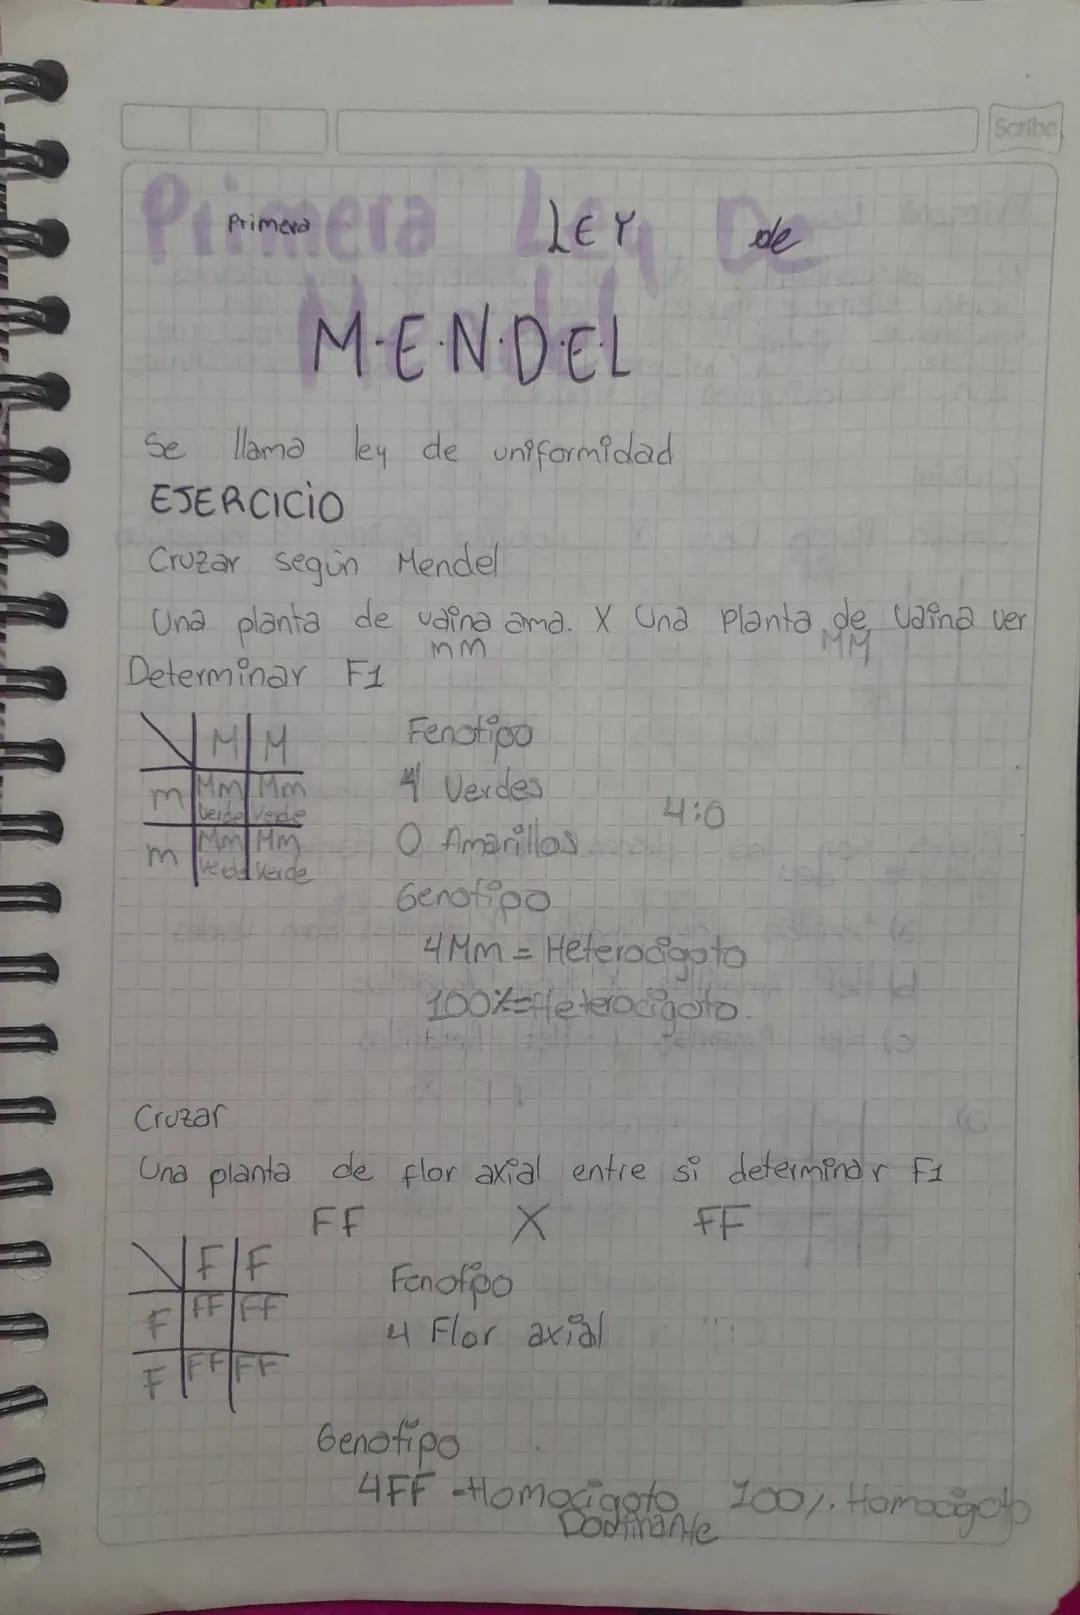 Scribe
Primera Ley De
Mendel
Primera LEY de
M.E.N.D.E.L
Se llama ley de uniformidad
EJERCICIO
Cruzar según Mendel
Una planta de vaina ama. X Una planta de vaina ver
mm MM
Determinar F1
M M
m Mm Mm
Verde Verde
m Mm Mm
Verde Verde
Fenotipo
4 Verdes
4:0
0 Amarillos
Genotipo
4Mm = Heterocigoto
100%=Heterocigoto.
Cruzar
Una planta de flor axial entre si determinar F1
FF X FF
F F
F FF FF
F FF FF
Fenotipo
4 Flor axial
Genotipo
4FF -Homocigoto 100%. Homocigoto
Dominante